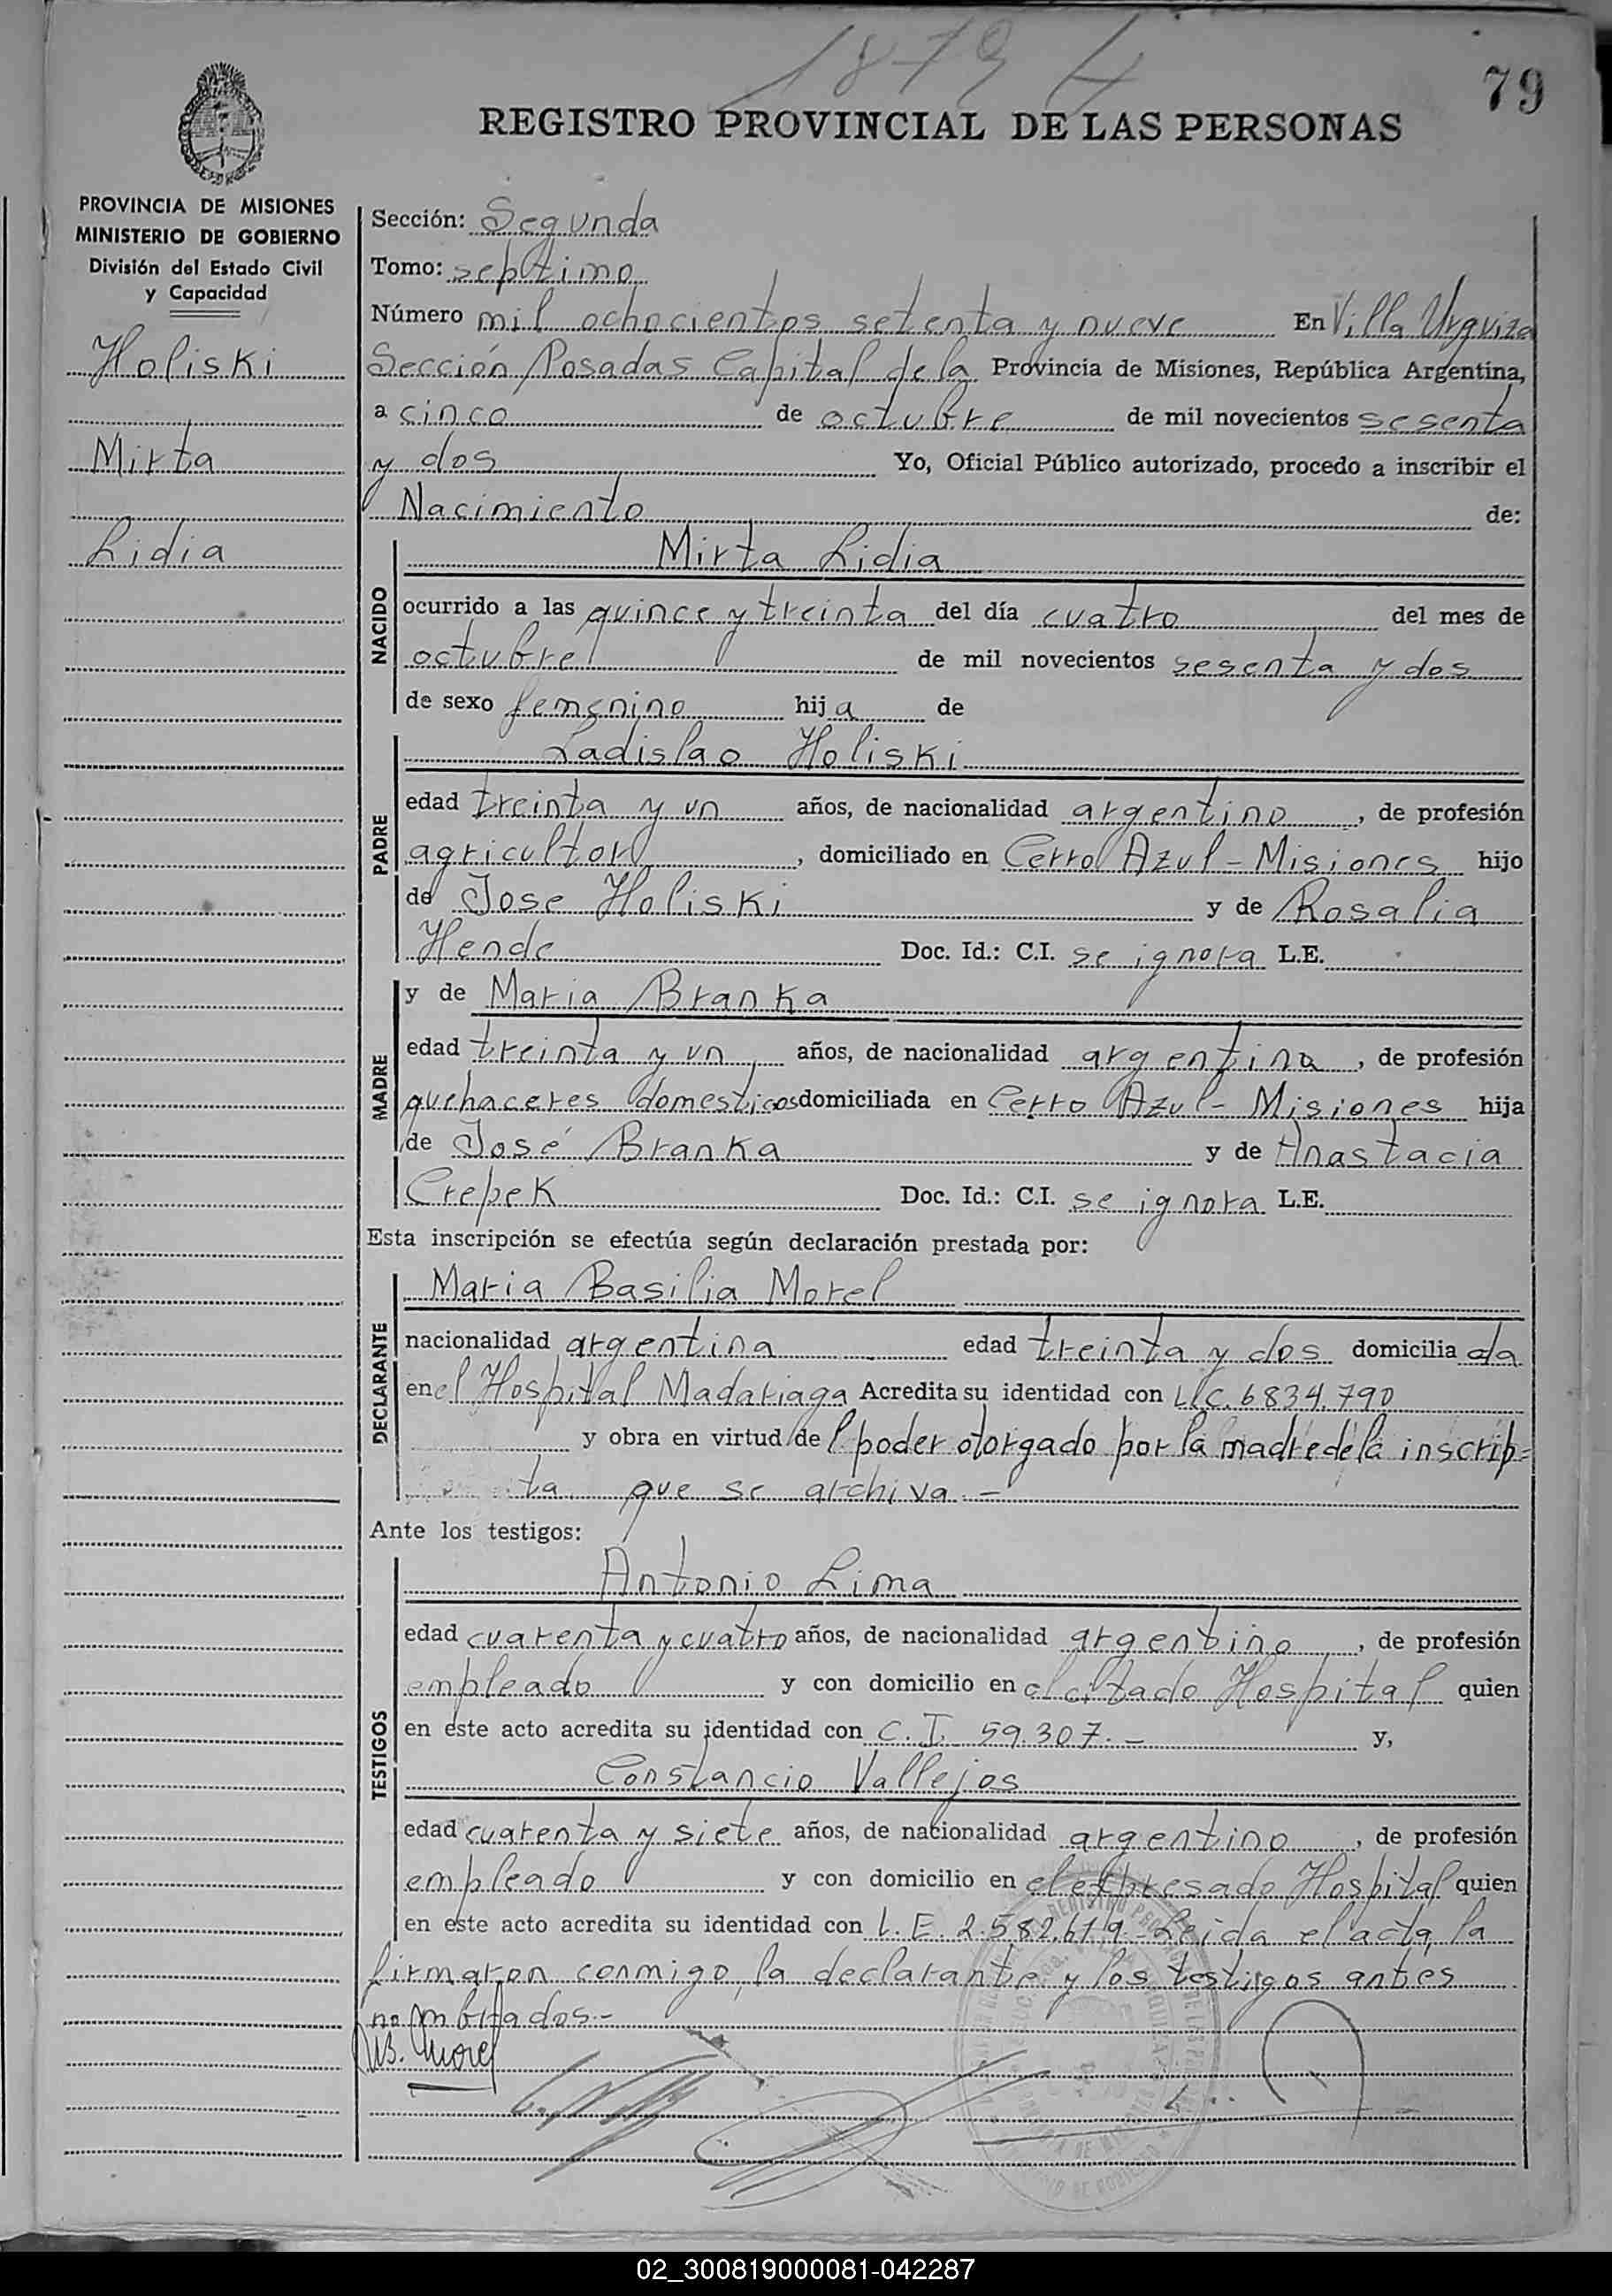 1879 4
79
REGISTRO PROVINCIAL DE LAS PERSONAS
PROVINCIA DE MISIONES
MINISTERIO DE GOBIERNO
División del Estado Civil
y Capacidad
Holiski
Mirta
Lidia
Sección: Segunda
Tomo: septimo
Número mil ochocientos setenta y nueve En Villa Urquiza
Sección Posadas Capital de la Provincia de Misiones, República Argentina,
a cinco de octubre de mil novecientos sesenta
y dos Yo, Oficial Público autorizado, procedo a inscribir el
Nacimiento de:
NACIDO
Mirta Lidia
ocurrido a las quince y treinta del día cuatro del mes de
octubre de mil novecientos sesenta y dos
de sexo femenino hija de
PADRE
Ladislao Holiski
edad treinta y un años, de nacionalidad argentino, de profesión
agricultor, domiciliado en Cerro Azul - Misiones hijo
de Jose Holiski y de Rosalia
Hende Doc. Id.: C.I. se ignora L.E.
MADRE
y de Maria Branka
edad treinta y un años, de nacionalidad argentina, de profesión
quehaceres domesticos domiciliada en Cerro Azul - Misiones hija
de José Branka y de Anastacia
Crepek Doc. Id.: C.I. se ignora L.E.
Esta inscripción se efectúa según declaración prestada por:
DECLARANTE
Maria Basilia Morel
nacionalidad argentina edad treinta y dos domiciliada
en el Hospital Madariaga Acredita su identidad con L.C. 6834.790
y obra en virtud del poder otorgado por la madre de la inscrip=
ta que se archiva.-
Ante los testigos:
TESTIGOS
Antonio Lima
edad cuarenta y cuatro años, de nacionalidad argentino, de profesión
empleado y con domicilio en el citado Hospital quien
en este acto acredita su identidad con C.I. 59.307.- y,
Constancio Vallejos
edad cuarenta y siete años, de nacionalidad argentino, de profesión
empleado y con domicilio en el expresado Hospital quien
en este acto acredita su identidad con L.E. 2.582.619.-Leida el acta, la
firmaron conmigo, la declarante y los testigos antes
nombrados.-
MB. Morel
02_300819000081-042287